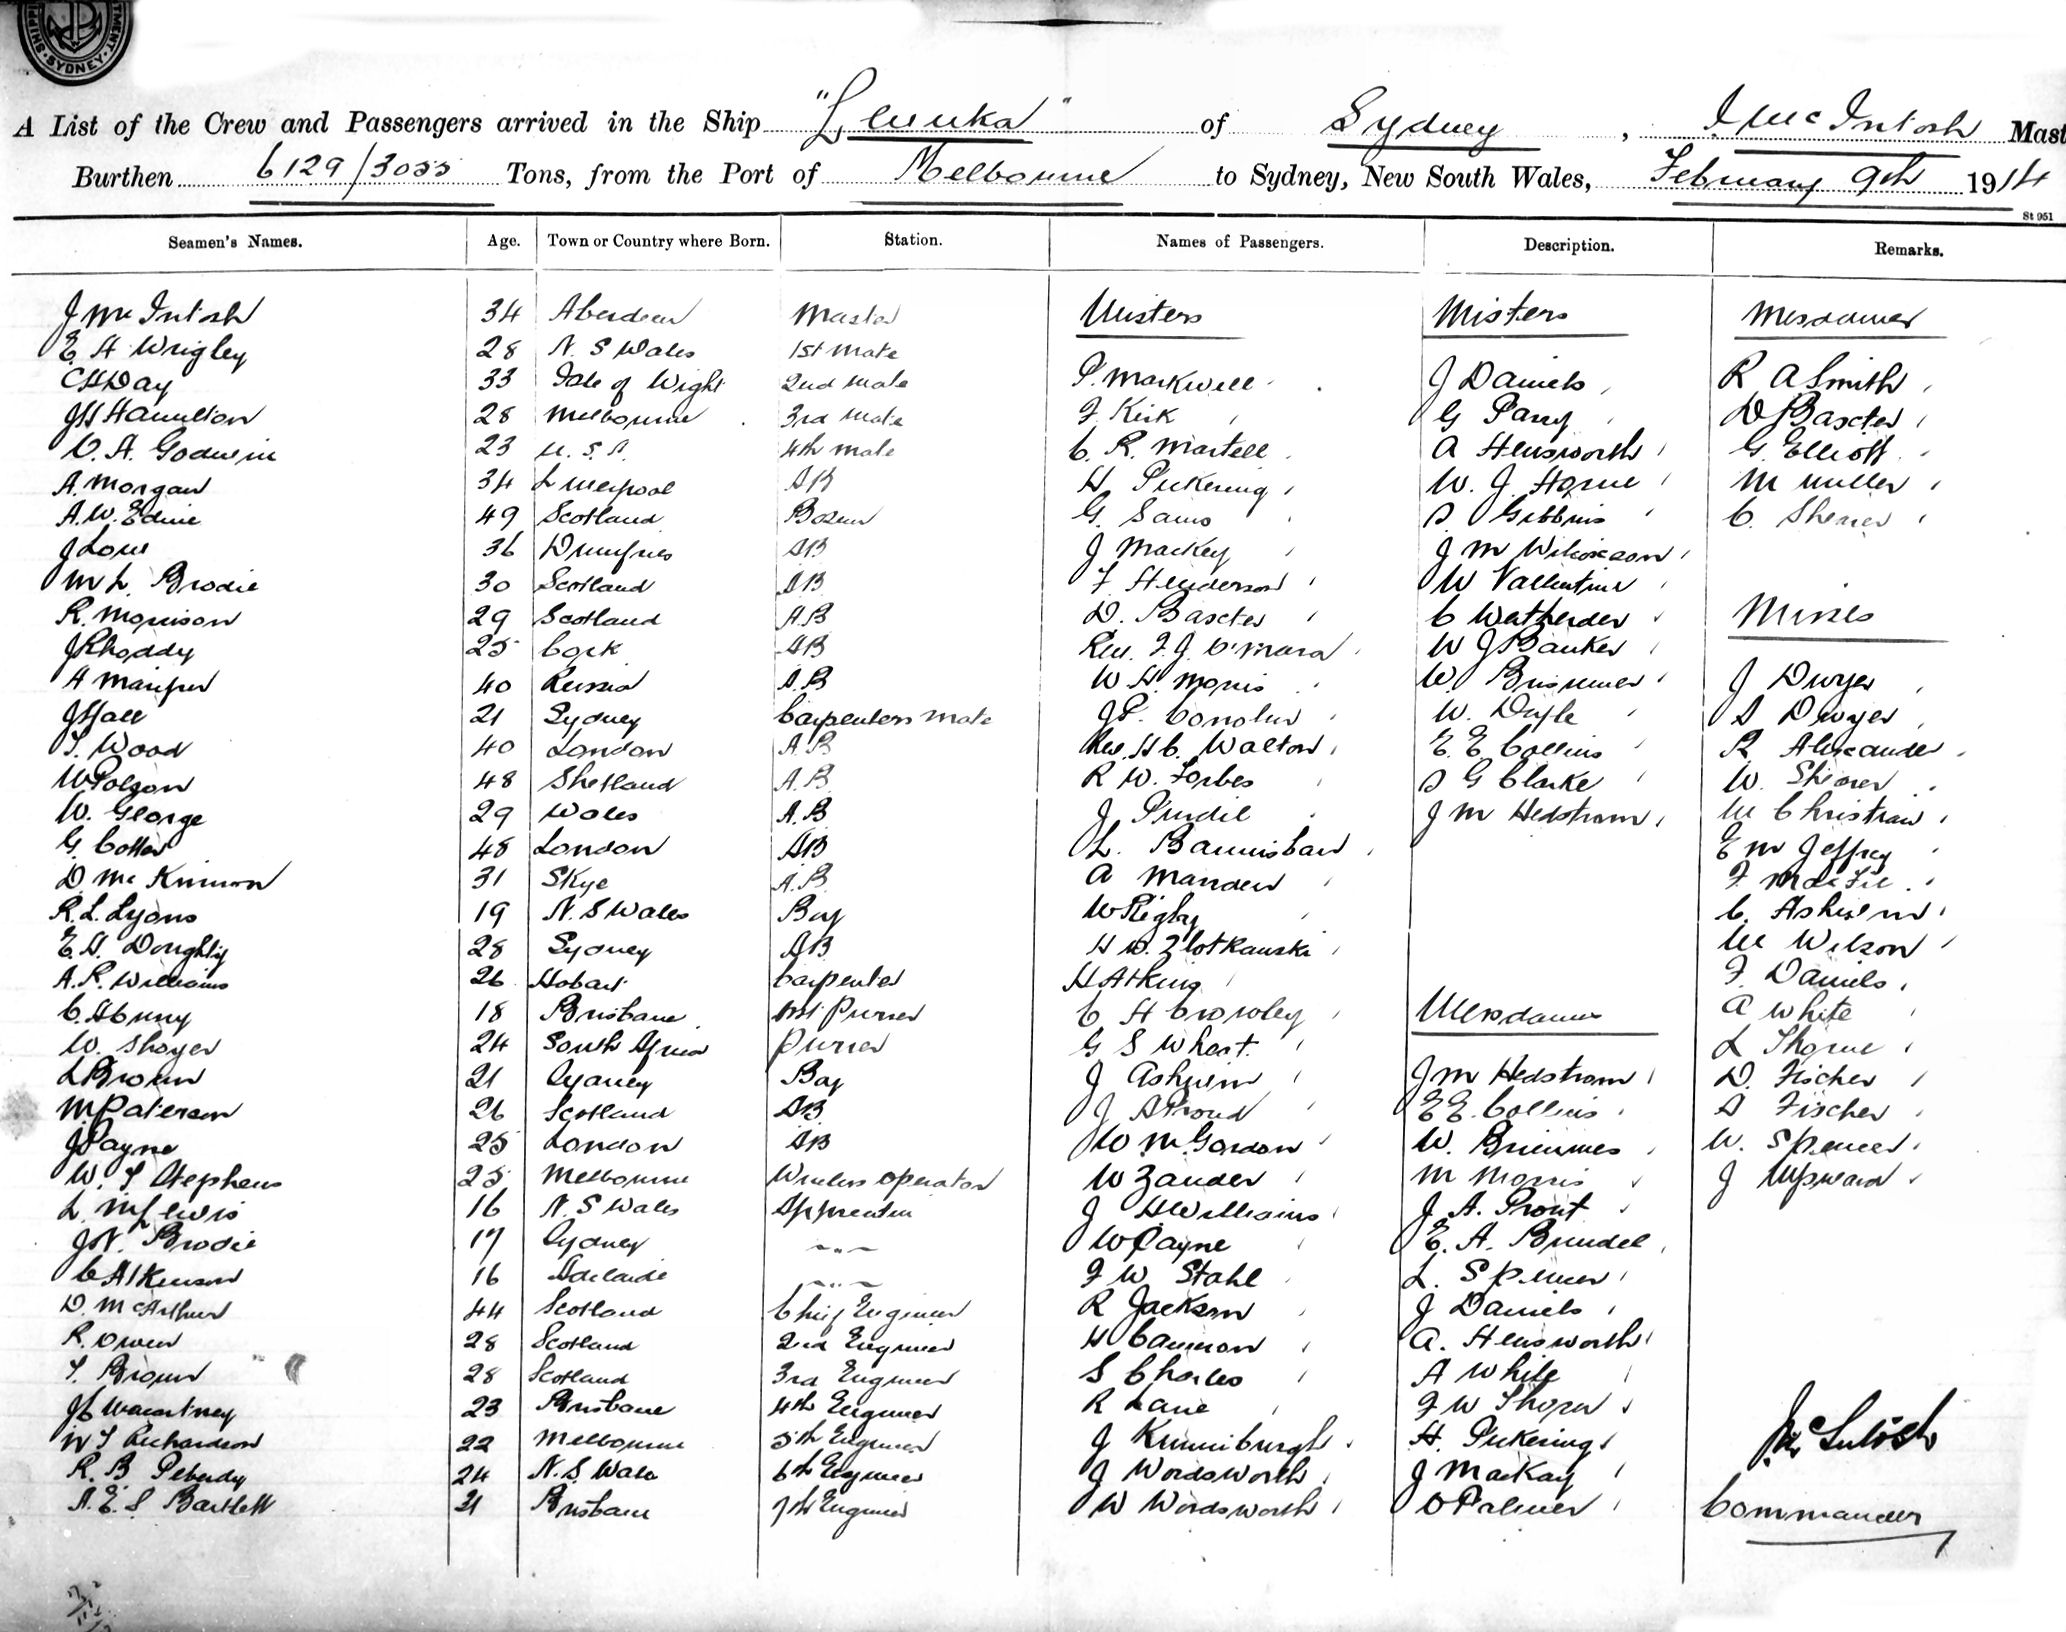 SHIPPING DEPARTMENT · SYDNEY ·
A List of the Crew and Passengers arrived in the Ship "Levuka" of Sydney, J McIntosh Mast
Burthen 6129/3055 Tons, from the Port of Melbourne to Sydney, New South Wales, February 9th 1914
St 951
Seamen's Names. Age. Town or Country where Born. Station. Names of Passengers. Description. Remarks.
J McIntosh 34 Aberdeen Master Misters Misters Mesdames
E. H Wrigley 28 N. S Wales 1st Mate
C H Day 33 Isle of Wight 2nd Mate P. Markwell J Daniels R A Smith
J H Hamilton 28 Melbourne 3rd Mate F Kirk G Parry D J Baxter
O. A. Godwin 23 U. S. A. 4th Mate C. R. Martell A Hensworth G. Elliott
A. Morgan 34 Liverpool AB H Pickering W. J. Horne M Muller
A. W. Edine 49 Scotland Bosun G. Sams S Gibbins C. Shearer
J Low 36 Dumfries AB J Mackey J M Wilcoxson
M L. Brodie 30 Scotland AB F Henderson W Vallentine
R. Morrison 29 Scotland A.B D. Baxter C Wetherder Misses
J Rhoddy 25 Cork AB Rev. F. J. O'Mara W J Banker
A 40 Russia A.B W H Morris W. Brimmer J Dwyer
J Hall 21 Sydney Carpenters Mate J P. W. Doyle S Dwyer
T. Wood 40 London A.B Rev. H C. Walton E E Collins R Alexander
W Polson 48 Shetland A.B. R W. Forbes S G Clarke W. Shearer
W. George 29 Wales A.B J Purdil J M Hedstrom M Christian
G. Cotter 48 London AB L. E M Jeffrey
D. McKinnon 31 Skye A.B. A Mander F MacFie
R. L. Lyons 19 N. S Wales Boy W Rigby C. Ashwin
E. A. Doughty 28 Sydney AB H W. Zlotkowski M Wilson
A. R. Williams 26 Hobart Carpenter H Atkins F. Daniels
18 Brisbane Asst Purser C H Crowley Mesdames A White
W. Shoyer 24 South Africa Purser G S Wheat. L Thorne
L Brown 21 Sydney Boy J Ashwin J M Hedstrom D. Fischer
M. Paterson 26 Scotland AB. J A Proud E E. Collins S Fischer
J Payne 25 London AB W M. Gordon W. Brimmer W. Spencer
W. T Stephens 25 Melbourne Wireless operator W Zander M Morris J Upward
L. M Lewis 16 N. S Wales Apprentice J H Williams J. A. Prout
J N. Brodie 17 Sydney ~"~ W Payne E. A. Brundel
C Atkinson 16 Adelaide ~"~ F W Stahl L. Spencer
D. McArthur 44 Scotland Chief Engineer R Jackson J Daniels
R. Owen 28 Scotland 2nd Engineer H Cameron A. Hensworth
T. Brown 28 Scotland 3rd Engineer S Charles A White
J C Macartney 23 Brisbane 4th Engineer R Lane F W Thorn
W T Richardson 22 Melbourne 5th Engineer J Kinniburgh H. Pickering J McIntosh
R. B Peberdy 24 N. S. Wales 6th Engineer J Wordsworth J Mackay
A. E. S Bartlett 21 Brisbane 7th Engineer W Wordsworth O Palmer Commander